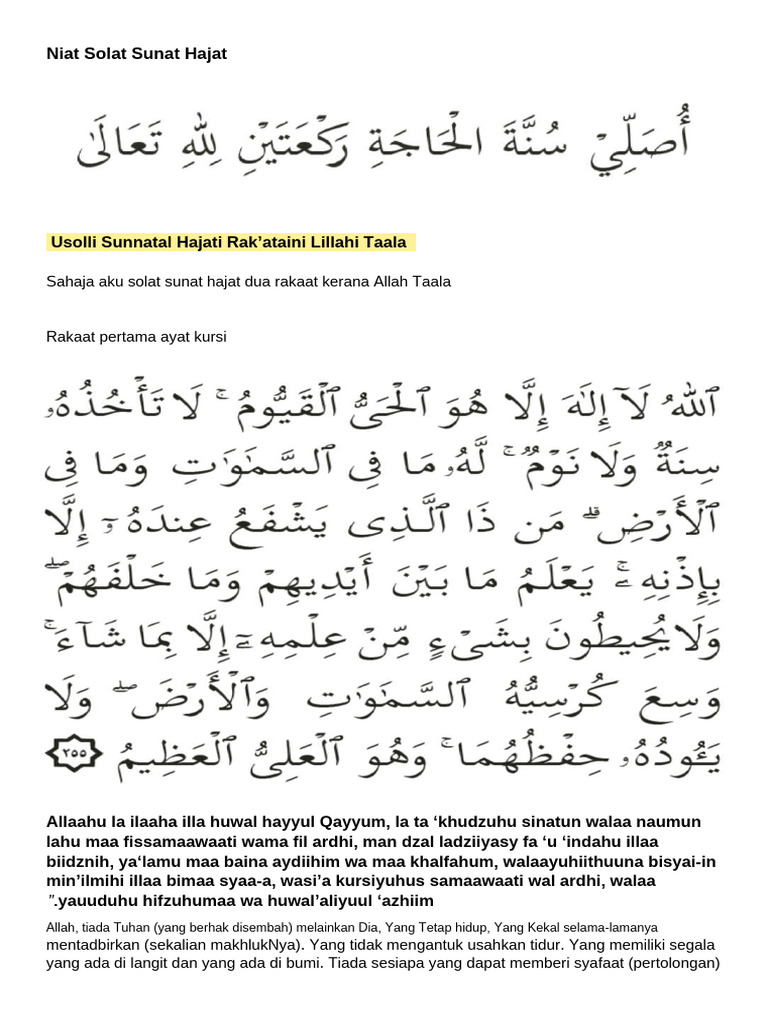 Niat Solat Sunat Hajat
أُصَلِّيْ سُنَّةَ الْحَاجَةِ رَكْعَتَيْنِ لِلّٰهِ تَعَالَىٰ
Usolli Sunnatal Hajati Rak’ataini Lillahi Taala
Sahaja aku solat sunat hajat dua rakaat kerana Allah Taala
Rakaat pertama ayat kursi
ٱللَّهُ لَآ إِلَٰهَ إِلَّا هُوَ ٱلْحَىُّ ٱلْقَيُّومُ ۚ لَا تَأْخُذُهُۥ
سِنَةٌ وَلَا نَوْمٌ ۚ لَّهُۥ مَا فِى ٱلسَّمَٰوَٰتِ وَمَا فِى
ٱلْأَرْضِ ۗ مَن ذَا ٱلَّذِى يَشْفَعُ عِندَهُۥٓ إِلَّا
بِإِذْنِهِۦ ۚ يَعْلَمُ مَا بَيْنَ أَيْدِيهِمْ وَمَا خَلْفَهُمْ ۖ
وَلَا يُحِيطُونَ بِشَىْءٍ مِّنْ عِلْمِهِۦٓ إِلَّا بِمَا شَآءَ ۚ
وَسِعَ كُرْسِيُّهُ ٱلسَّمَٰوَٰتِ وَٱلْأَرْضَ ۖ وَلَا
يَـُٔودُهُۥ حِفْظُهُمَا ۚ وَهُوَ ٱلْعَلِىُّ ٱلْعَظِيمُ ٢٥٥
Allaahu la ilaaha illa huwal hayyul Qayyum, la ta ‘khudzuhu sinatun walaa naumun
lahu maa fissamaawaati wama fil ardhi, man dzal ladziiyasy fa ‘u ‘indahu illaa
biidznih, ya‘lamu maa baina aydiihim wa maa khalfahum, walaayuhiithuuna bisyai-in
min’ilmihi illaa bimaa syaa-a, wasi’a kursiyuhus samaawaati wal ardhi, walaa
”.yauuduhu hifzuhumaa wa huwal’aliyuul ‘azhiim
Allah, tiada Tuhan (yang berhak disembah) melainkan Dia, Yang Tetap hidup, Yang Kekal selama-lamanya
mentadbirkan (sekalian makhlukNya). Yang tidak mengantuk usahkan tidur. Yang memiliki segala
yang ada di langit dan yang ada di bumi. Tiada sesiapa yang dapat memberi syafaat (pertolongan)